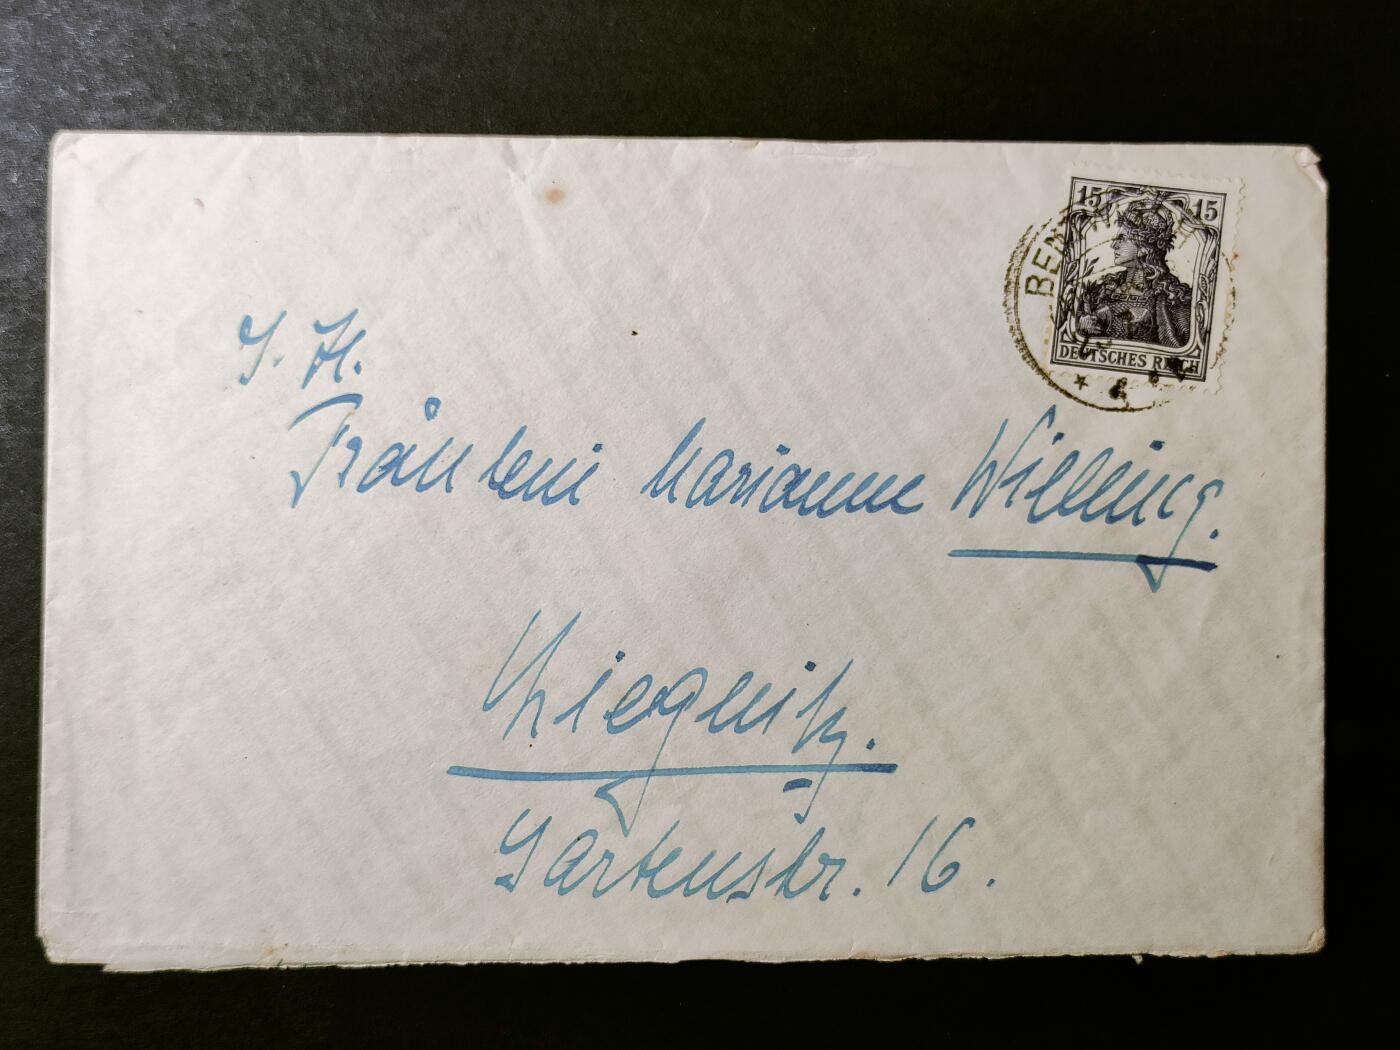 15 15
DEUTSCHES REICH
S. H.
Fräulein Marianne Willing.
Liegnitz.
Gartenstr. 16.